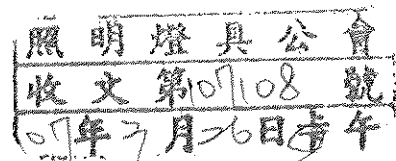 照明燈具公會
收文第107108號
107年3月26日 午